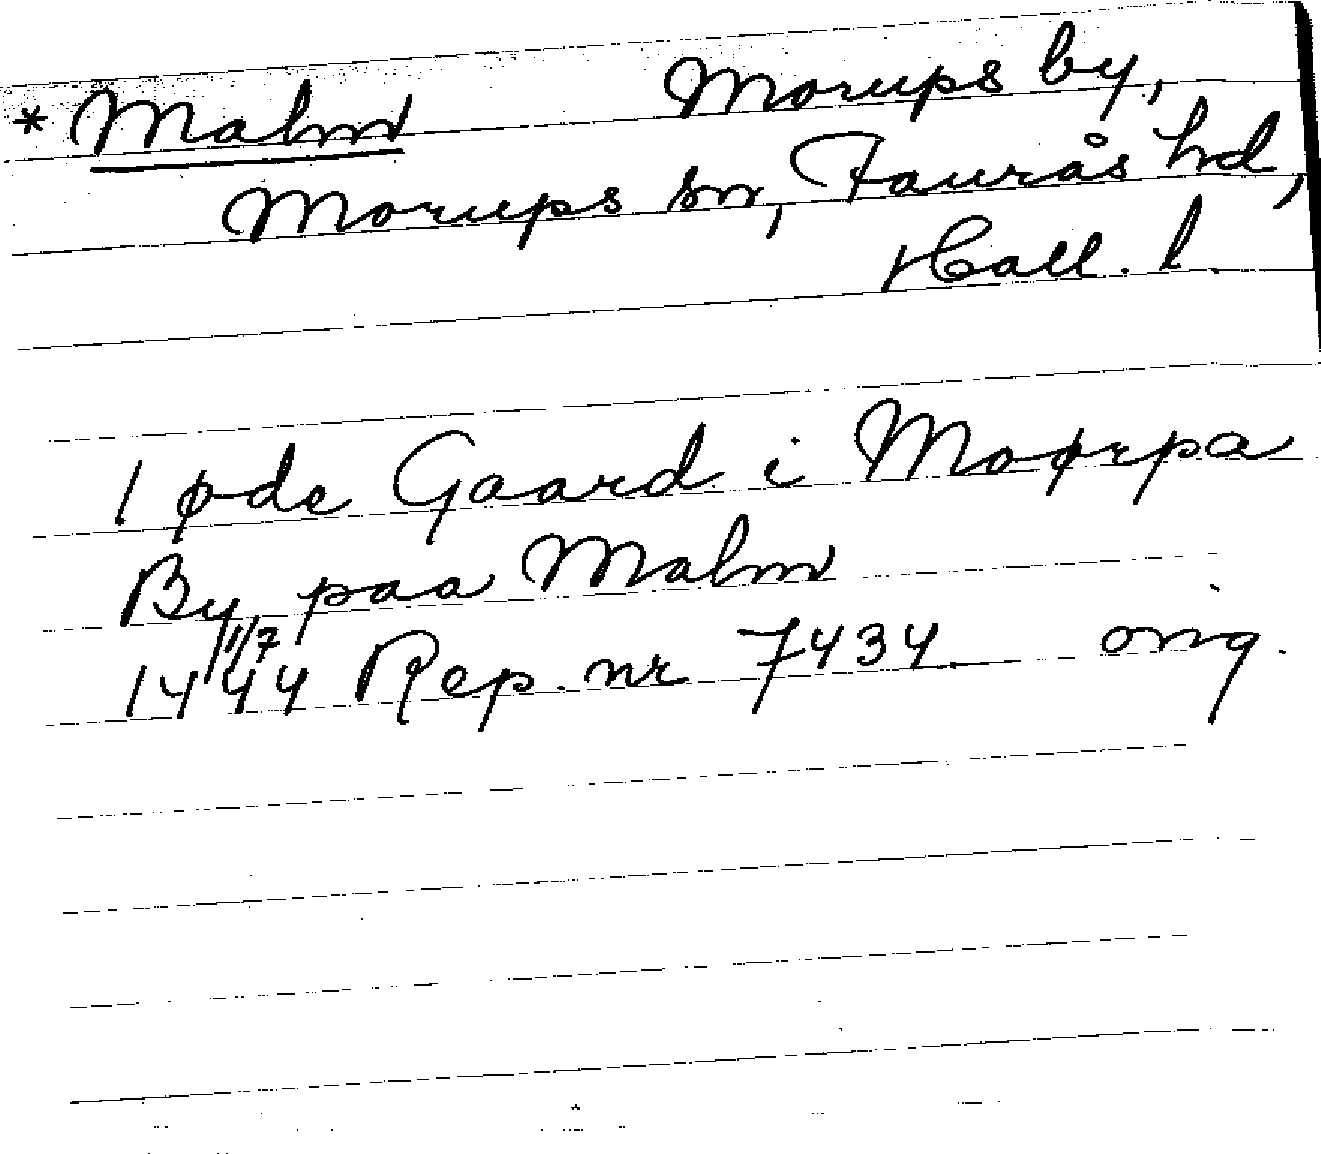 * Malm Morups by,
Morups sn, Faurås hd,
Hall. l.
1 øde Gaard i Moørpa
By paa Malm
1444 11/7 Rep. nr 7434. orig.